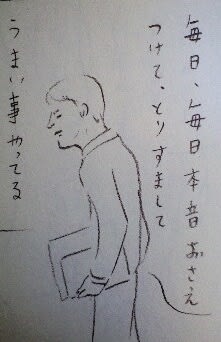 毎日、毎日本音おさえ
つけて、とりすまして
うまい事やってる